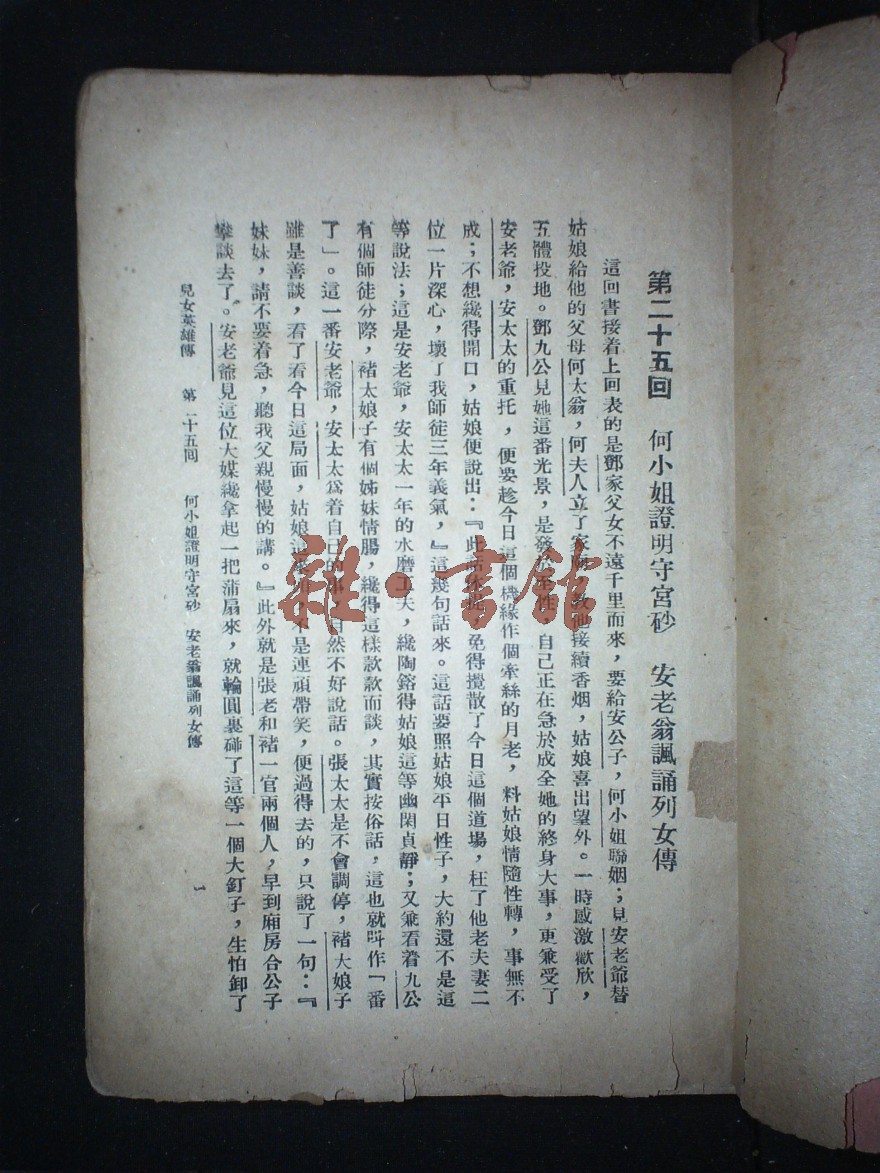 第二十五回　何小姐證明守宮砂　安老翁諷誦列女傳
這回書接着上回表的是鄧家父女不遠千里而來，要給安公子，何小姐聯姻；見安老爺替
姑娘給他的父母何太翁，何夫人立了家廟，教他接續香烟，姑娘喜出望外。一時感激歡欣，
五體投地。鄧九公見她這番光景，是發於至性，自己正在急於成全她的終身大事，更兼受了
安老爺，安太太的重托，便要趁今日這個機緣作個牽絲的月老，料姑娘情隨性轉，事無不
成；不想纔得開口，姑娘便說出：『此話休提，免得攪散了今日這個道場，枉了他老夫妻二
位一片深心，壞了我師徒三年義氣，』這幾句話來。這話要照姑娘平日性子，大約還不是這
等說法；這是安老爺，安太太一年的水磨工夫，纔陶鎔得姑娘這等幽閑貞靜；又兼看着九公
有個師徒分際，褚大娘子有個姊妹情腸，纔得這樣款款而談，其實按俗話，這也就叫作「番
了」。這一番安老爺，安太太爲着自己的事自然不好說話。張太太是不會調停，褚大娘子
雖是善談，看了看今日這局面，姑娘這來不是連頑帶笑，便過得去的，只說了一句：『
妹妹，請不要着急，聽我父親慢慢的講。』此外就是張老和褚一官兩個人，早到廂房合公子
攀談去了。安老爺見這位大媒纔拿起一把蒲扇來，就輪圓裏碰了這等一個大釘子，生怕卸了
兒女英雄傳　第二十五回　何小姐證明守宮砂　安老翁諷誦列女傳
一
雜·書館